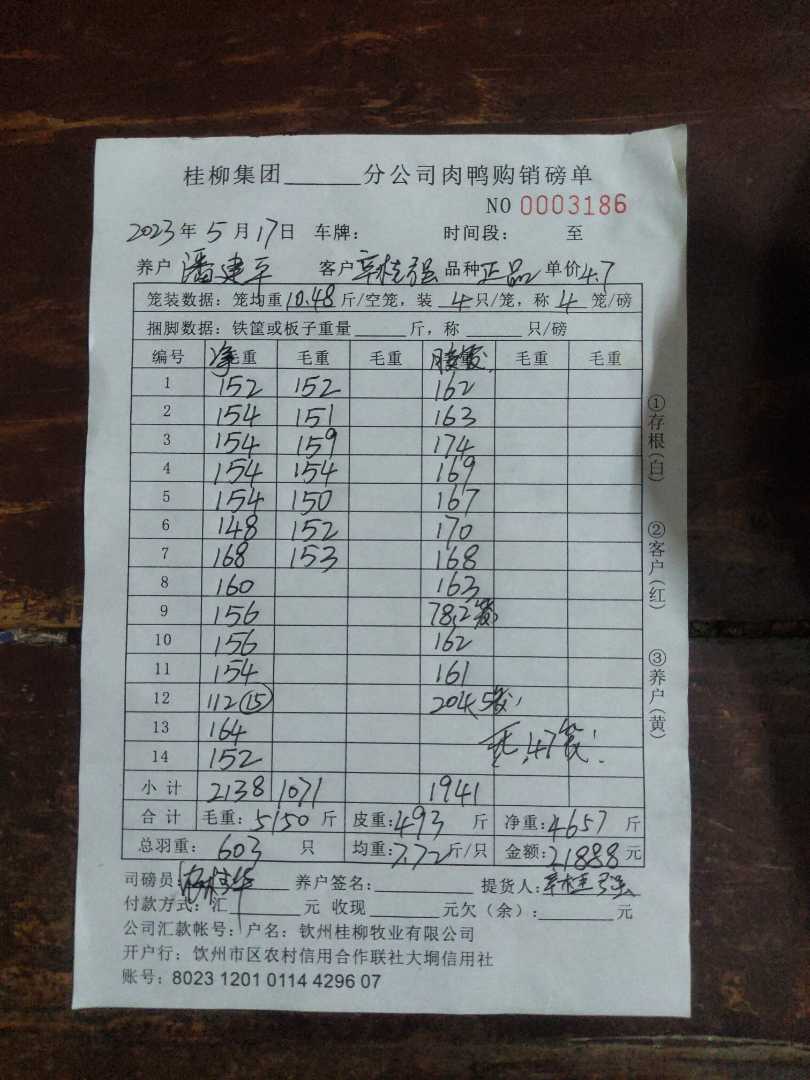 桂柳集团______分公司肉鸭购销磅单
NO 0003186
2023年5月17日 车牌: 时间段: 至
养户 潘建平 客户 辛桂强 品种 正品 单价 4.7
笼装数据: 笼均重10.48斤/空笼, 装 4 只/笼, 称 4 笼/磅
捆脚数据: 铁筐或板子重量______斤, 称______只/磅
编号 净毛重 毛重 毛重 毛重 毛重
1 152 152 162
2 154 151 163
3 154 159 174
4 154 154 169
5 154 150 167
6 148 152 170
7 168 153 168
8 160 163
9 156 78.2笼
10 156 162
11 154 161
12 112⑮ 204.5笼
13 164 47笼
14 152
小计 2138 1071 1941
合计 毛重: 5150 斤 皮重: 493 斤 净重: 4657 斤
总羽重: 603 只 均重: 7.72 斤/只 金额: 21888 元
司磅员: 养户签名: 提货人: 辛桂强
付款方式: 汇______元 收现______元欠(余): ______元
公司汇款帐号: 户名: 钦州桂柳牧业有限公司
开户行: 钦州市区农村信用合作联社大垌信用社
账号: 8023 1201 0114 4296 07
①存根(白)
②客户(红)
③养户(黄)